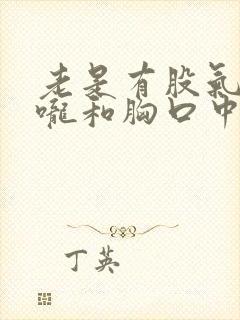 老是有股氣
嚨和胸口中
丁英